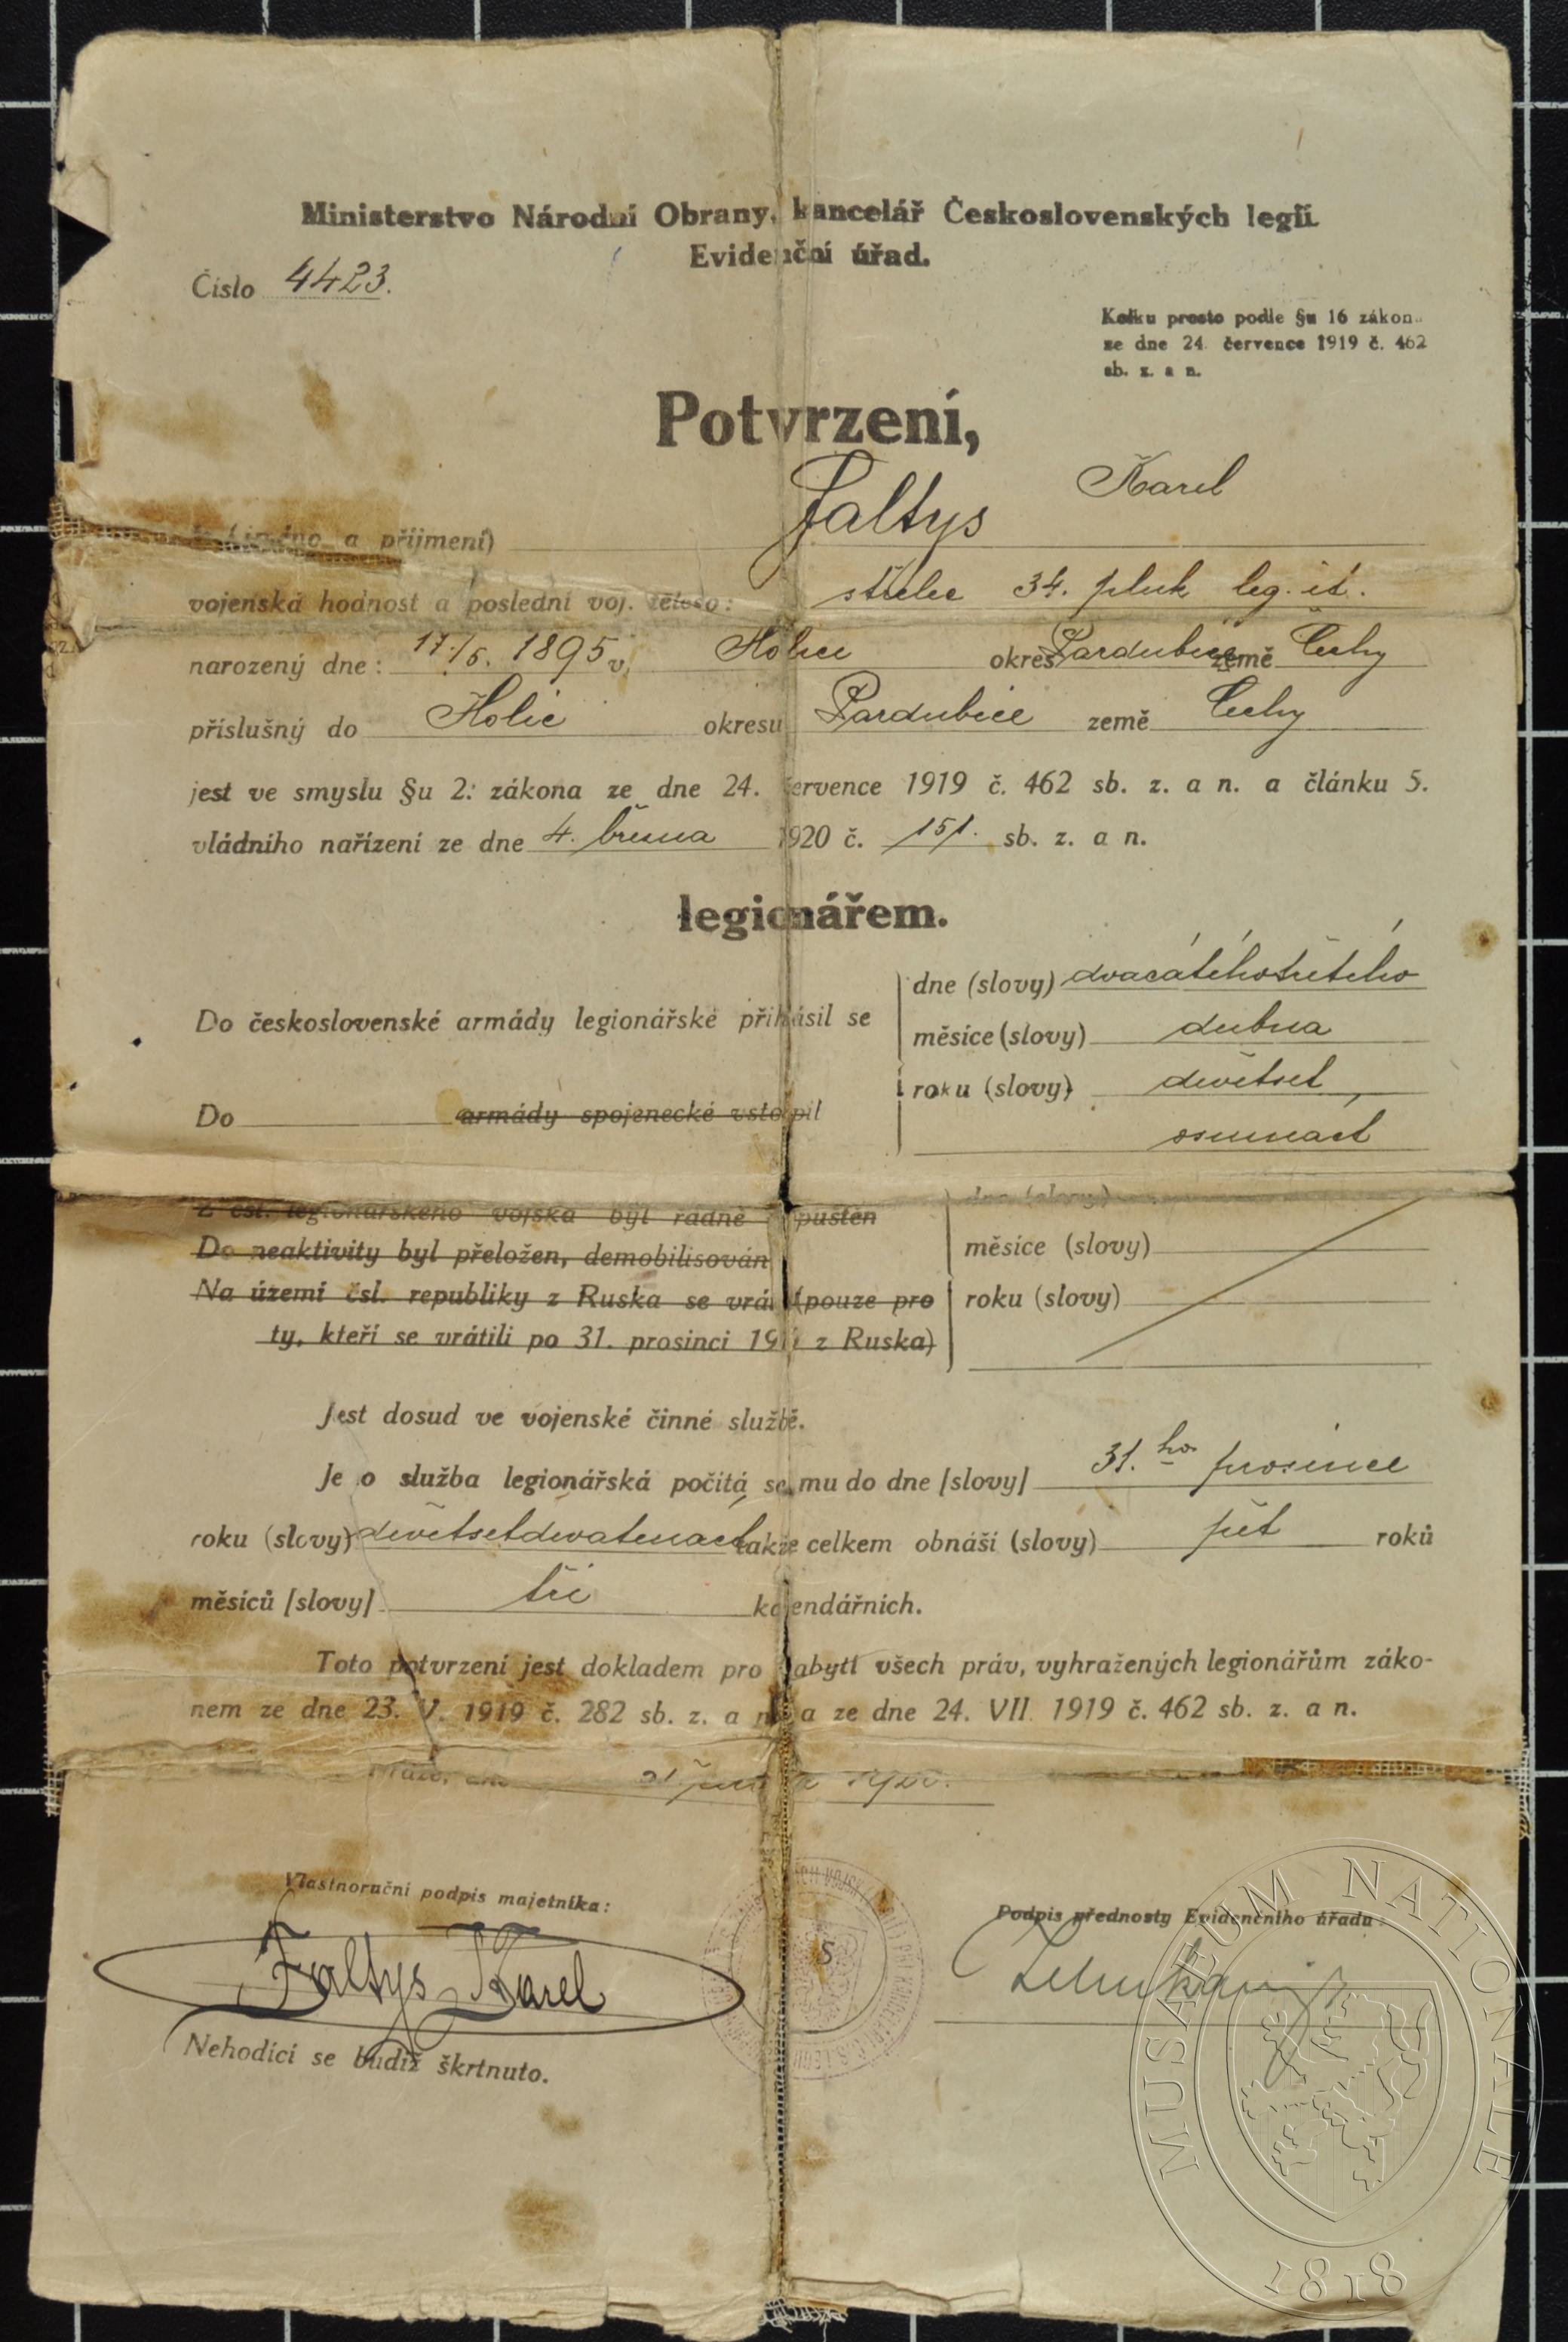 Ministerstvo Národní Obrany, kancelář Československých legií.
Evidenční úřad.
Číslo 4423.
Kolku prosto podle §u 16 zákon
ze dne 24. července 1919 č. 462
sb. z. a n.
Potvrzení,
a příjmení) Faltys Karel
vojenská hodnost a poslední voj. těleso: střelec 34. pluk leg. it.
narozený dne: 17./5. 1895 v Holici okres Pardubice země Čechy
příslušný do Holic okresu Pardubice země Čechy
jest ve smyslu §u 2: zákona ze dne 24. července 1919 č. 462 sb. z. a n. a článku 5.
vládního nařízení ze dne 4. března 1920 č. 151. sb. z. a n.
legionářem.
Do československé armády legionářské přihlásil se
dne (slovy) dvacátéhotřetého
měsíce (slovy) dubna
roku (slovy) devětset
osmnáct
Do armády spojenecké vstoupil
Z čsl. legionářského vojska byl řádně propuštěn
Do neaktivity byl přeložen, demobilisován
Na území čsl. republiky z Ruska se vrátil (pouze pro
ty, kteří se vrátili po 31. prosinci 19 z Ruska)
dne (slovy)
měsíce (slovy)
roku (slovy)
Jest dosud ve vojenské činné službě.
Jeho služba legionářská počítá se mu do dne [slovy] 31. ho prosince
roku (slovy) devětsetdevatenáct takže celkem obnáší (slovy) pět roků
měsíců [slovy] tři kalendářních.
Toto potvrzení jest dokladem pro nabytí všech práv, vyhražených legionářům záko-
nem ze dne 23. V. 1919 č. 282 sb. z. a n. a ze dne 24. VII. 1919 č. 462 sb. z. a n.
Vlastnoruční podpis majetníka:
Faltys Karel
Podpis přednosty Evidenčního úřadu:
Nehodící se budiž škrtnuto.
MUSAEUM NATIONALE
1818